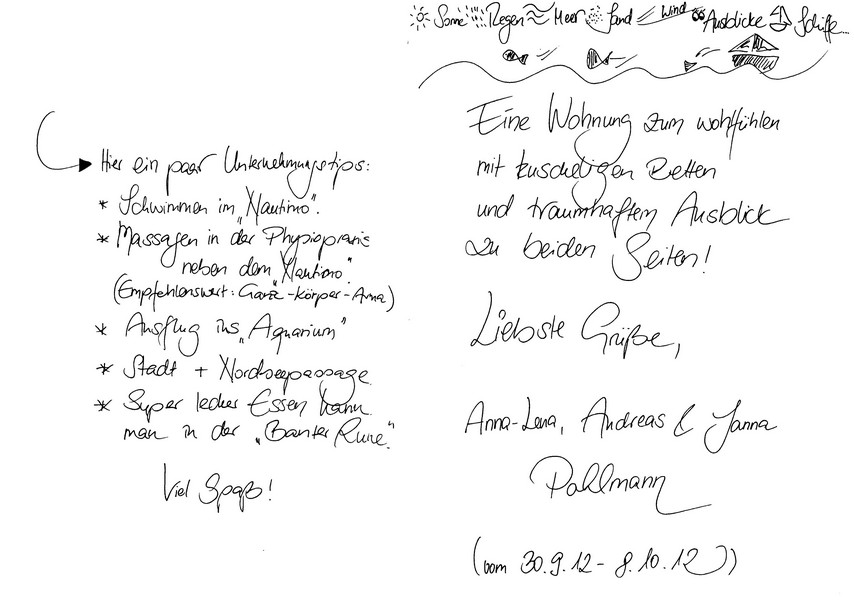 Hier ein paar Unternehmungstips:
* Schwimmen im „Nautimo".
* Massagen in der Physiopraxis
neben dem „Nautimo".
(Empfehlenswert: Ganz-Körper-Anna)
* Ausflug ins „Aquarium"
* Stadt + Nordseepassage
* Super lecker Essen kann
man in der „Banter Ruine".
Viel Spaß!
Sonne Regen Meer Sand Wind Ausblicke Schiffe...
Eine Wohnung zum wohlfühlen
mit kuscheligen Betten
und traumhaftem Ausblick
zu beiden Seiten!
Liebste Grüße,
Anna-Lena, Andreas & Janna
Pohlmann
(vom 30.9.12 - 8.10.12))